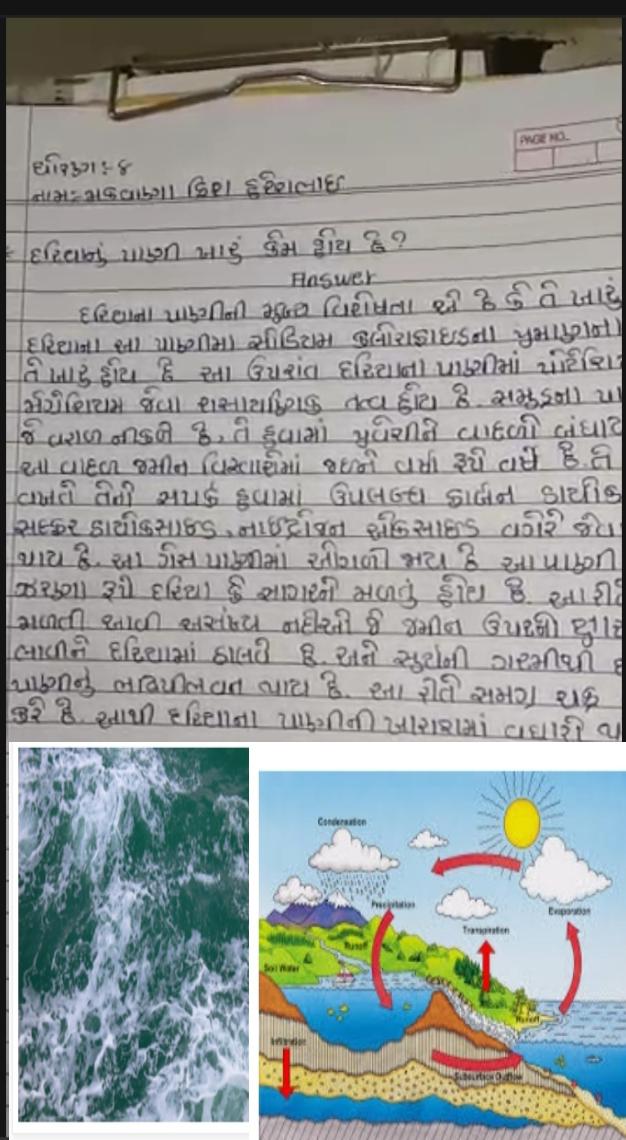 PAGE NO.
ધોરણ:- ૪
નામ:- મકવાણા
દરિયાનું પાણી ખારું કેમ હોય છે?
Answer
દરિયાના પાણીની મુખ્ય વિશેષતા એ છે કે તે ખારું
દરિયાના આ પાણીમાં સોડિયમ ક્લોરાઇડના
તે ખારું હોય છે આ ઉપરાંત દરિયાના પાણીમાં
મેગ્નેશિયમ જેવા રાસાયણિક તત્વ હોય છે. સમુદ્રના
જે વરાળ નીકળે છે, તે હવામાં પ્રવેશીને વાદળો
આ વાદળ જમીન વિસ્તારોમાં જઇને વર્ષા રૂપે વર્ષે છે. તે
વખતે તેની સંપર્ક હવામાં ઉપલબ્ધ કાર્બન
સલ્ફર ડાયોકસાઇડ, નાઇટ્રોજન ઓકસાઇડ વગેરે
થાય છે. આ ગેસ પાણીમાં ઓગળી જાય છે આ પાણી
ઝરણા રૂપે દરિયા કે સાગરને મળતું હોય છે. આ
મળતી આવી અસંખ્ય નદીઓ જે જમીન ઉપરથી
લાવીને દરિયામાં ઠાલવે છે. અને સૂર્યની ગરમીથી
પાણીનું થાય છે. આ રીતે સમગ્ર ચક્ર
કરે છે. આથી દરિયાના પાણીની ખારાશમાં વધારો
Condensation
Precipitation
Evaporation
Transpiration
Runoff
Soil Water
Runoff
Infiltration
Subsurface Outflow